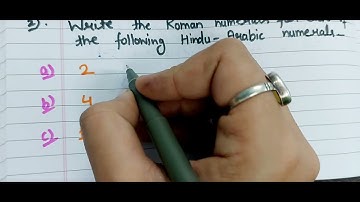 2). Write the Roman numerals
the following Hindu-Arabic numerals-
a) 2
b) 4
c)